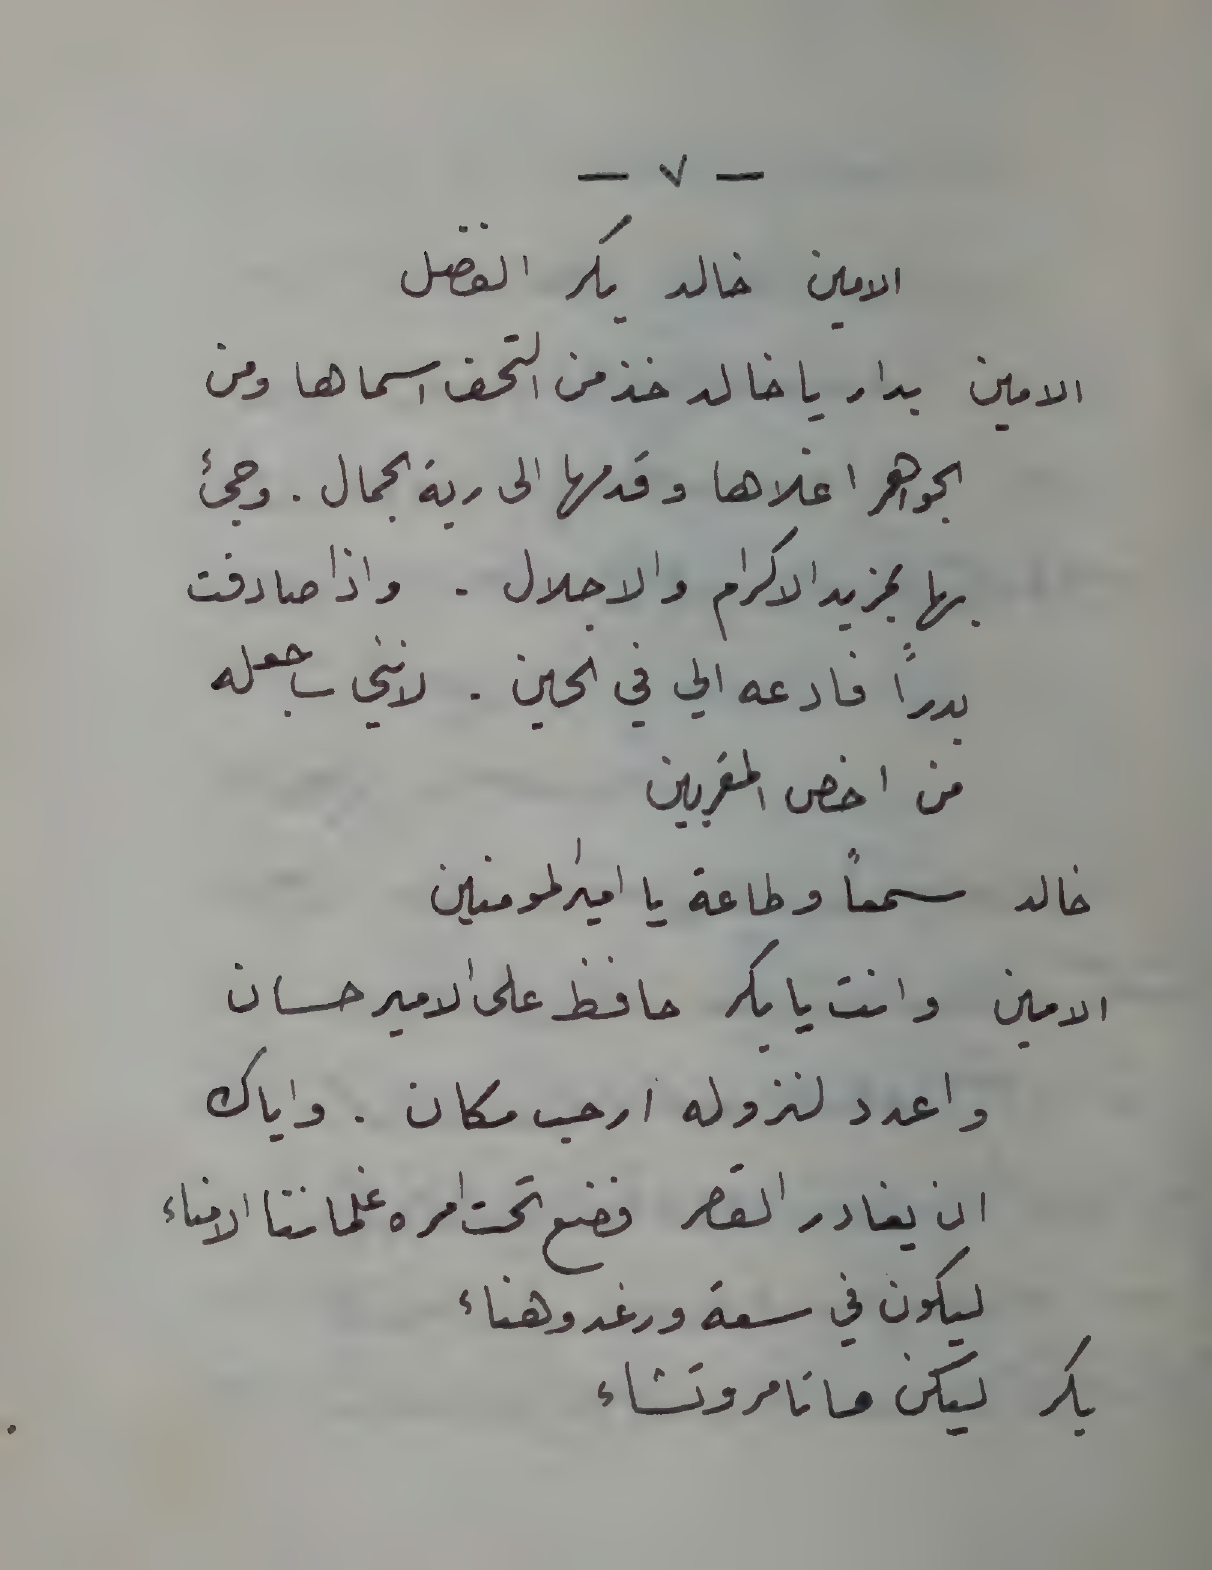 — ٧ —
الامين خالد بكر الفضل
الامين بدار يا خالد خذ من التحف اسماها ومن
الجواهر اغلاها وقدمها الى ربة الجمال . وجئ
بها بمزيد الاكرام والاجلال . واذا صادفت
بدراً فادعه الي في الحين . لانني ساجعله
من اخص المقربين
خالد سمعاً وطاعة يا امير المومنين
الامين وانت يا بكر حافظ على الامير حسان
واعدد لنزوله ارحب مكان . واياك
ان يغادر القصر فضع تحت امره غلماننا الامناء
ليكون في سعة ورغد وهناء
بكر ليكن ما تامر وتشاء